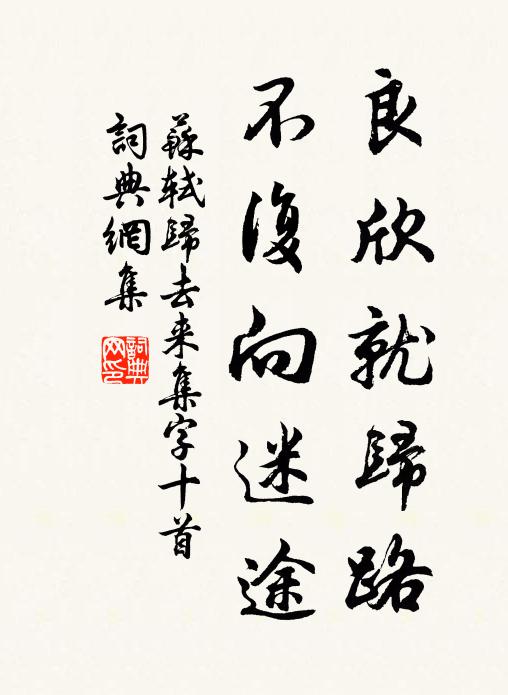 良欣就歸路
不復向迷途
蘇軾歸去来集字十首
詞典網集
詞典
网印